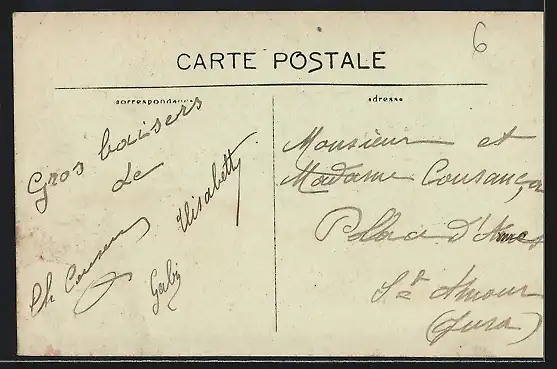 6
CARTE POSTALE
correspondance
adresse
Gros baisers
de
Elisabeth
Gaby
Monsieur et
Madame Cousançon
Place d'Armes
St Amour
(Jura)